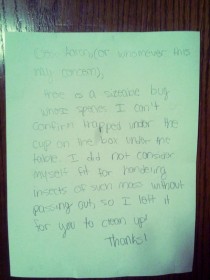 (or whomever this
may concern),
there is a sizeable bug
whose species I can't
confirm trapped under the
cup on the box under the
table. I did not consider
myself fit for handling
insects of such mass without
passing out, so I left it
for you to clean up!
Thanks!